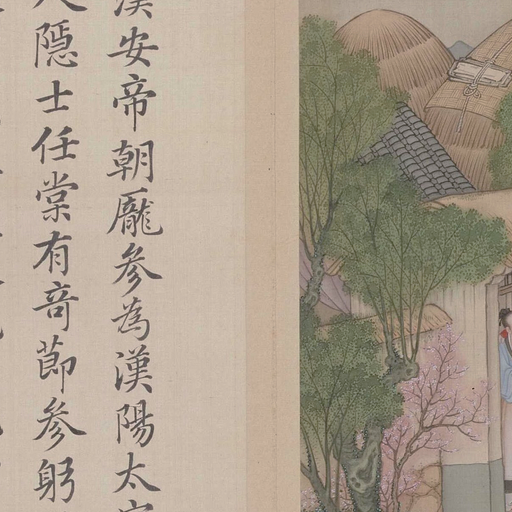 漢安帝朝龐參為漢陽太守
隱士任棠有奇節參躬